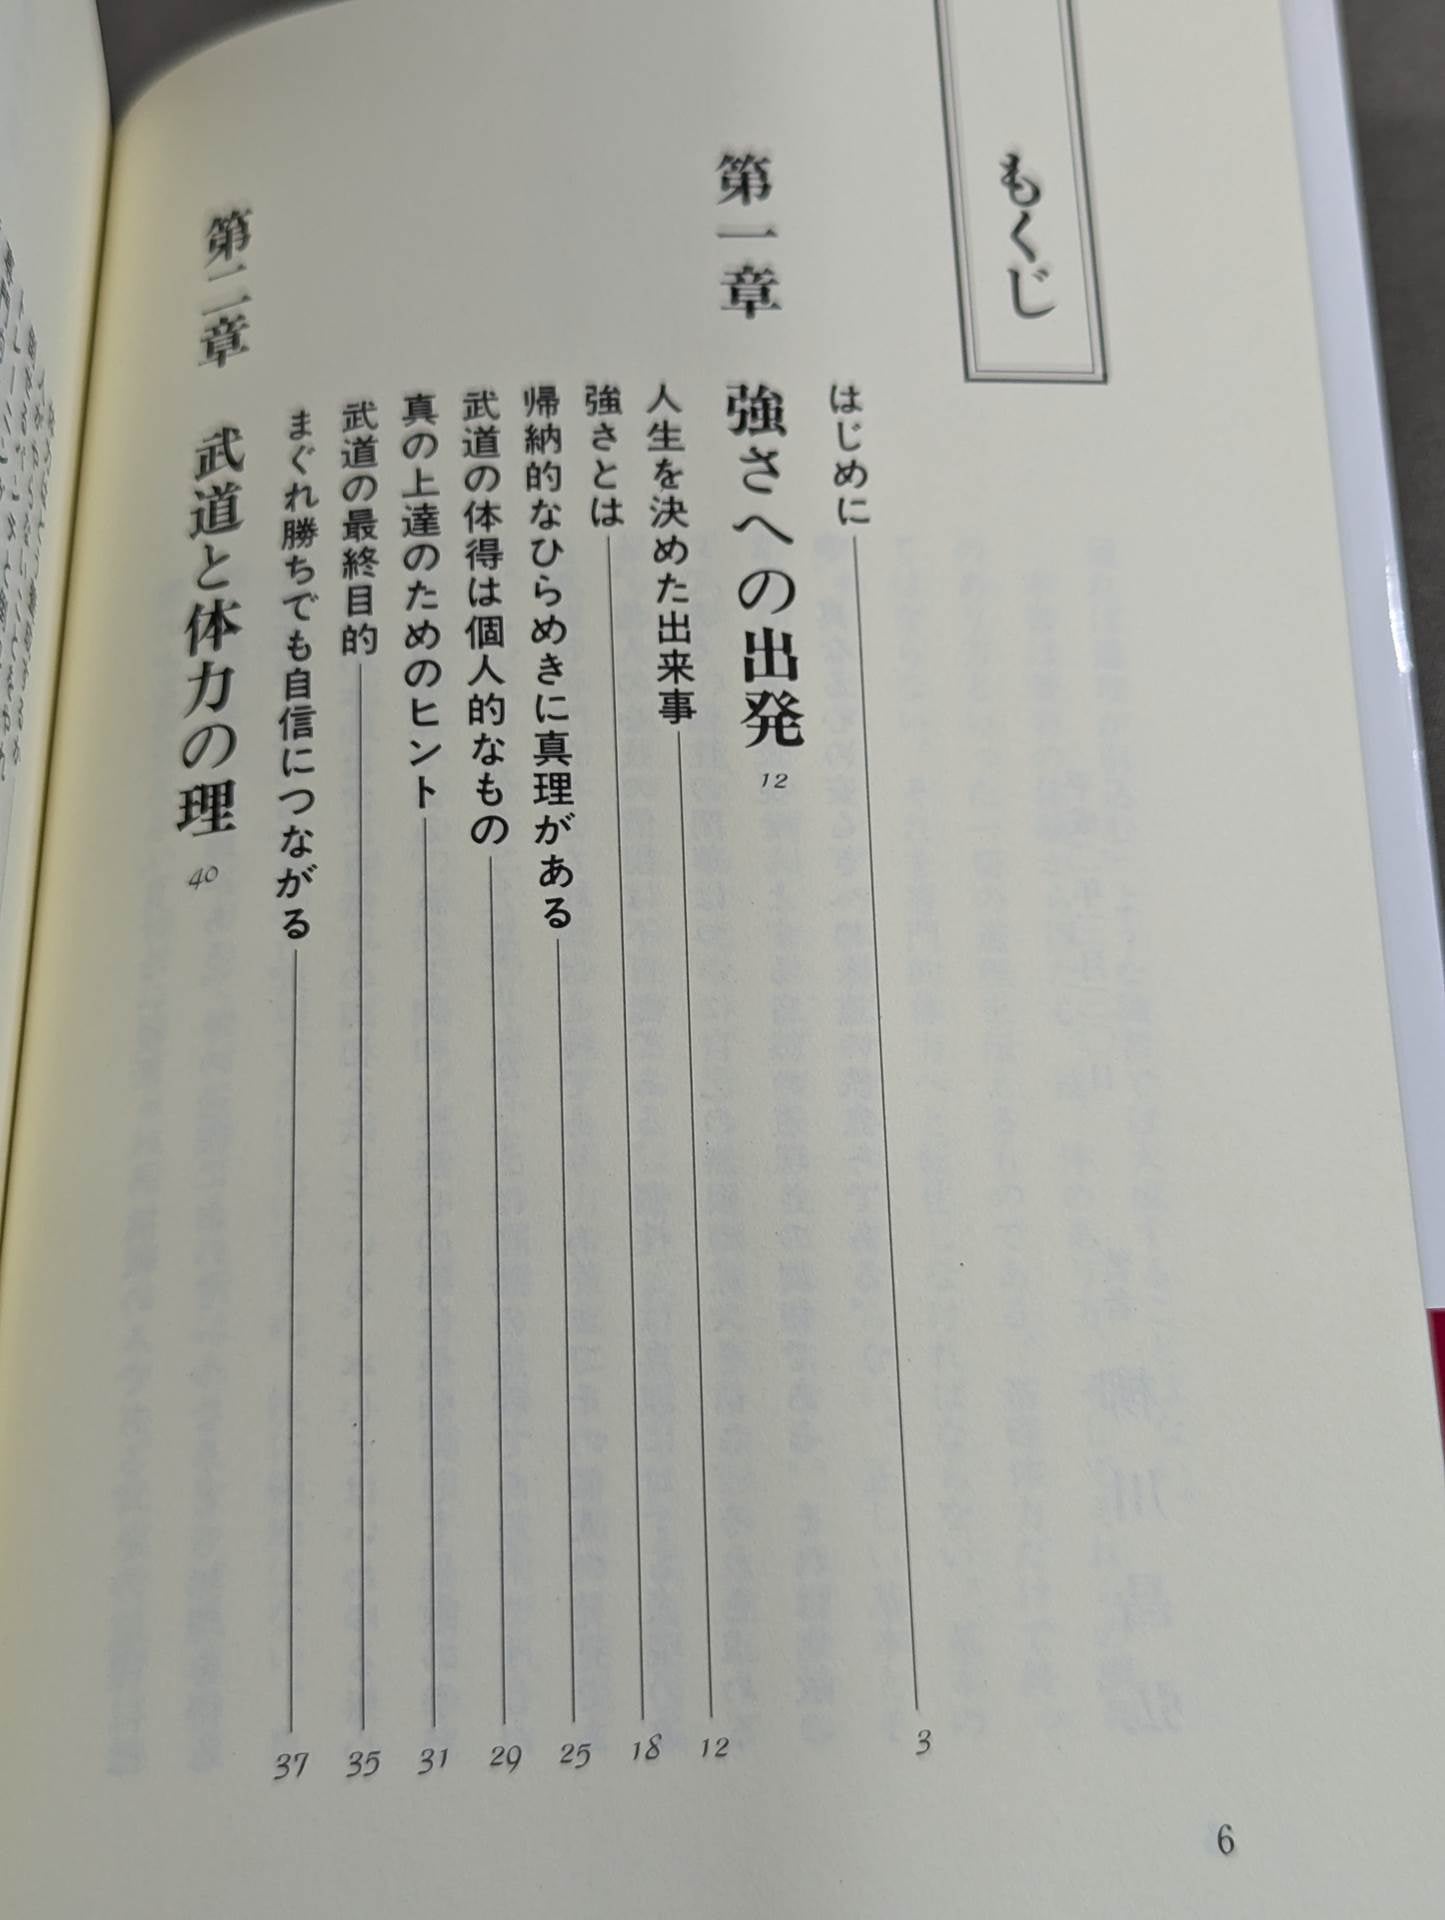 もくじ
はじめに 3
第一章 強さへの出発 12
人生を決めた出来事 12
強さとは 18
帰納的なひらめきに真理がある 25
武道の体得は個人的なもの 29
真の上達のためのヒント 31
武道の最終目的 35
まぐれ勝ちでも自信につながる 37
第二章 武道と体力の理 40
6